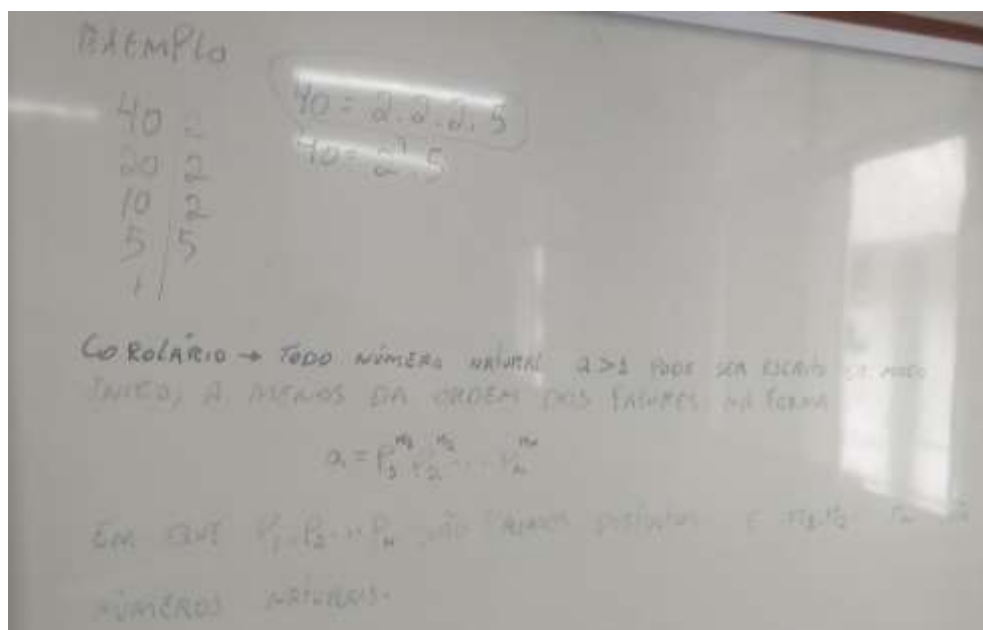 EXEMPLO
40 2
20 2
10 2
5 5
1
40 = 2.2.2.5
40 = 2³.5
COROLÁRIO → TODO NÚMERO NATURAL a>1 PODE SER ESCRITO DE MODO
ÚNICO, A MENOS DA ORDEM DOS FATORES, NA FORMA
a = P₁ⁿ¹ P₂ⁿ² ...
EM QUE P₁, P₂ ... SÃO PRIMOS DISTINTOS E
NÚMEROS NATURAIS.